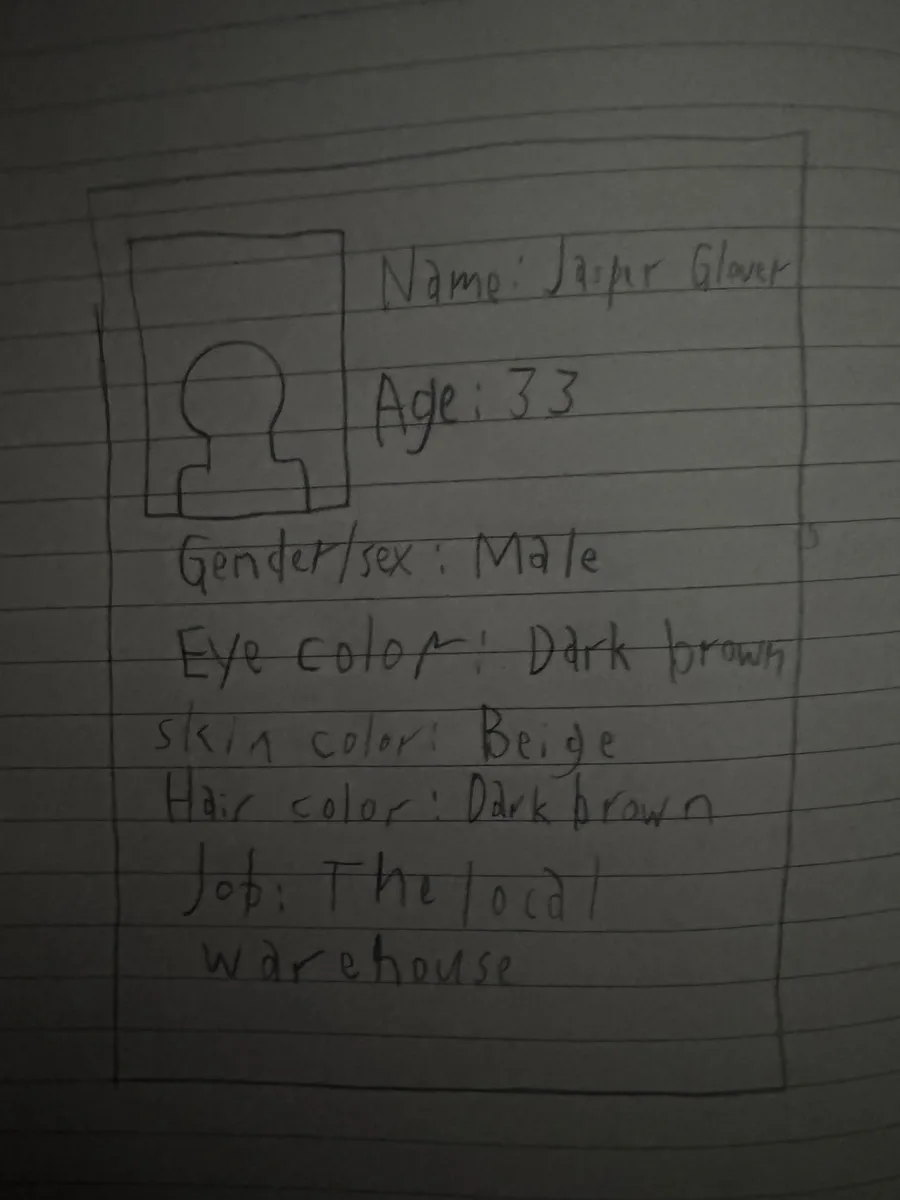 Name: Jasper Glover
Age: 33
Gender/sex: Male
Eye color: Dark brown
skin color: Beige
Hair color: Dark brown
Job: The local
warehouse